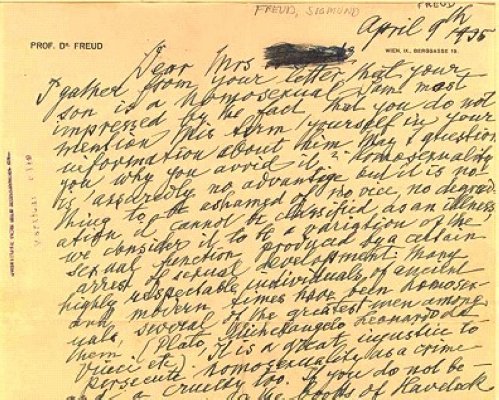 FREUD, SIGMUND
FREUD
April 9th 1935
PROF. Dr FREUD
WIEN, IX., BERGGASSE 19.
Dear Mrs
I gather from your letter that your
son is a homosexual. I am most
impressed by the fact, that you do not
mention this term yourself in your
information about him. May I question
you why you avoid it? Homosexuality
is assuredly no advantage but it is no-
thing to be ashamed of, no vice, no degrad-
ation, it cannot be classified as an illness;
we consider it to be a variation of the
sexual function produced by a certain
arrest of sexual development. Many
highly respectable individuals of ancient
and modern times have been homosex-
uals, several of the greatest men among
them (Plato, Michelangelo, Leonardo da
Vinci etc). It is a great injustice to
persecute homosexuality as a crime
and a cruelty too. If you do not be-
the books of Havelock